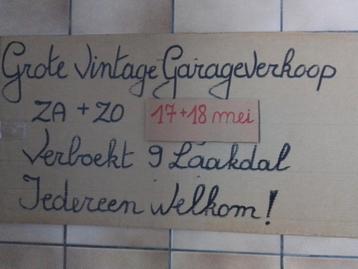 Grote Vintage Garageverkoop
ZA + ZO 17+18 mei
Verboekt 9 Laakdal
Iedereen Welkom!